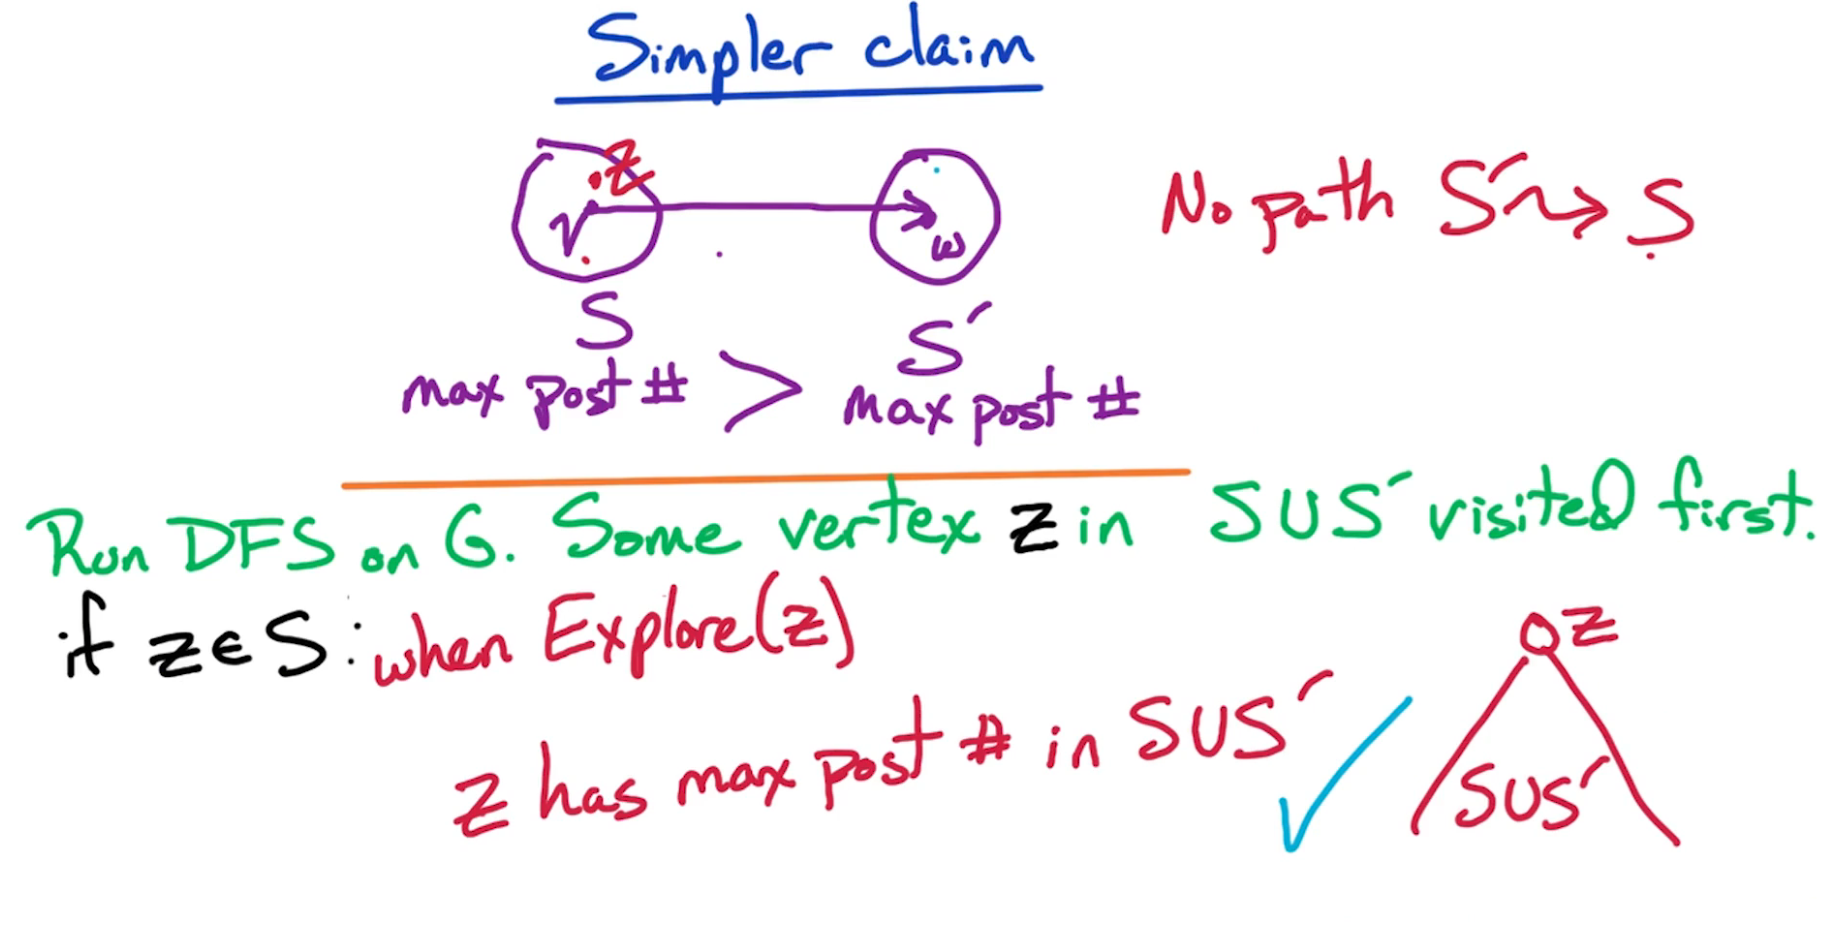 Simpler claim
z
v
w
No path S' ⇝ S
S
S'
max post # > max post #
Run DFS on G. Some vertex z in S∪S' visited first.
if z∈S: when Explore(z)
z
z has max post # in S∪S' ✓
S∪S'